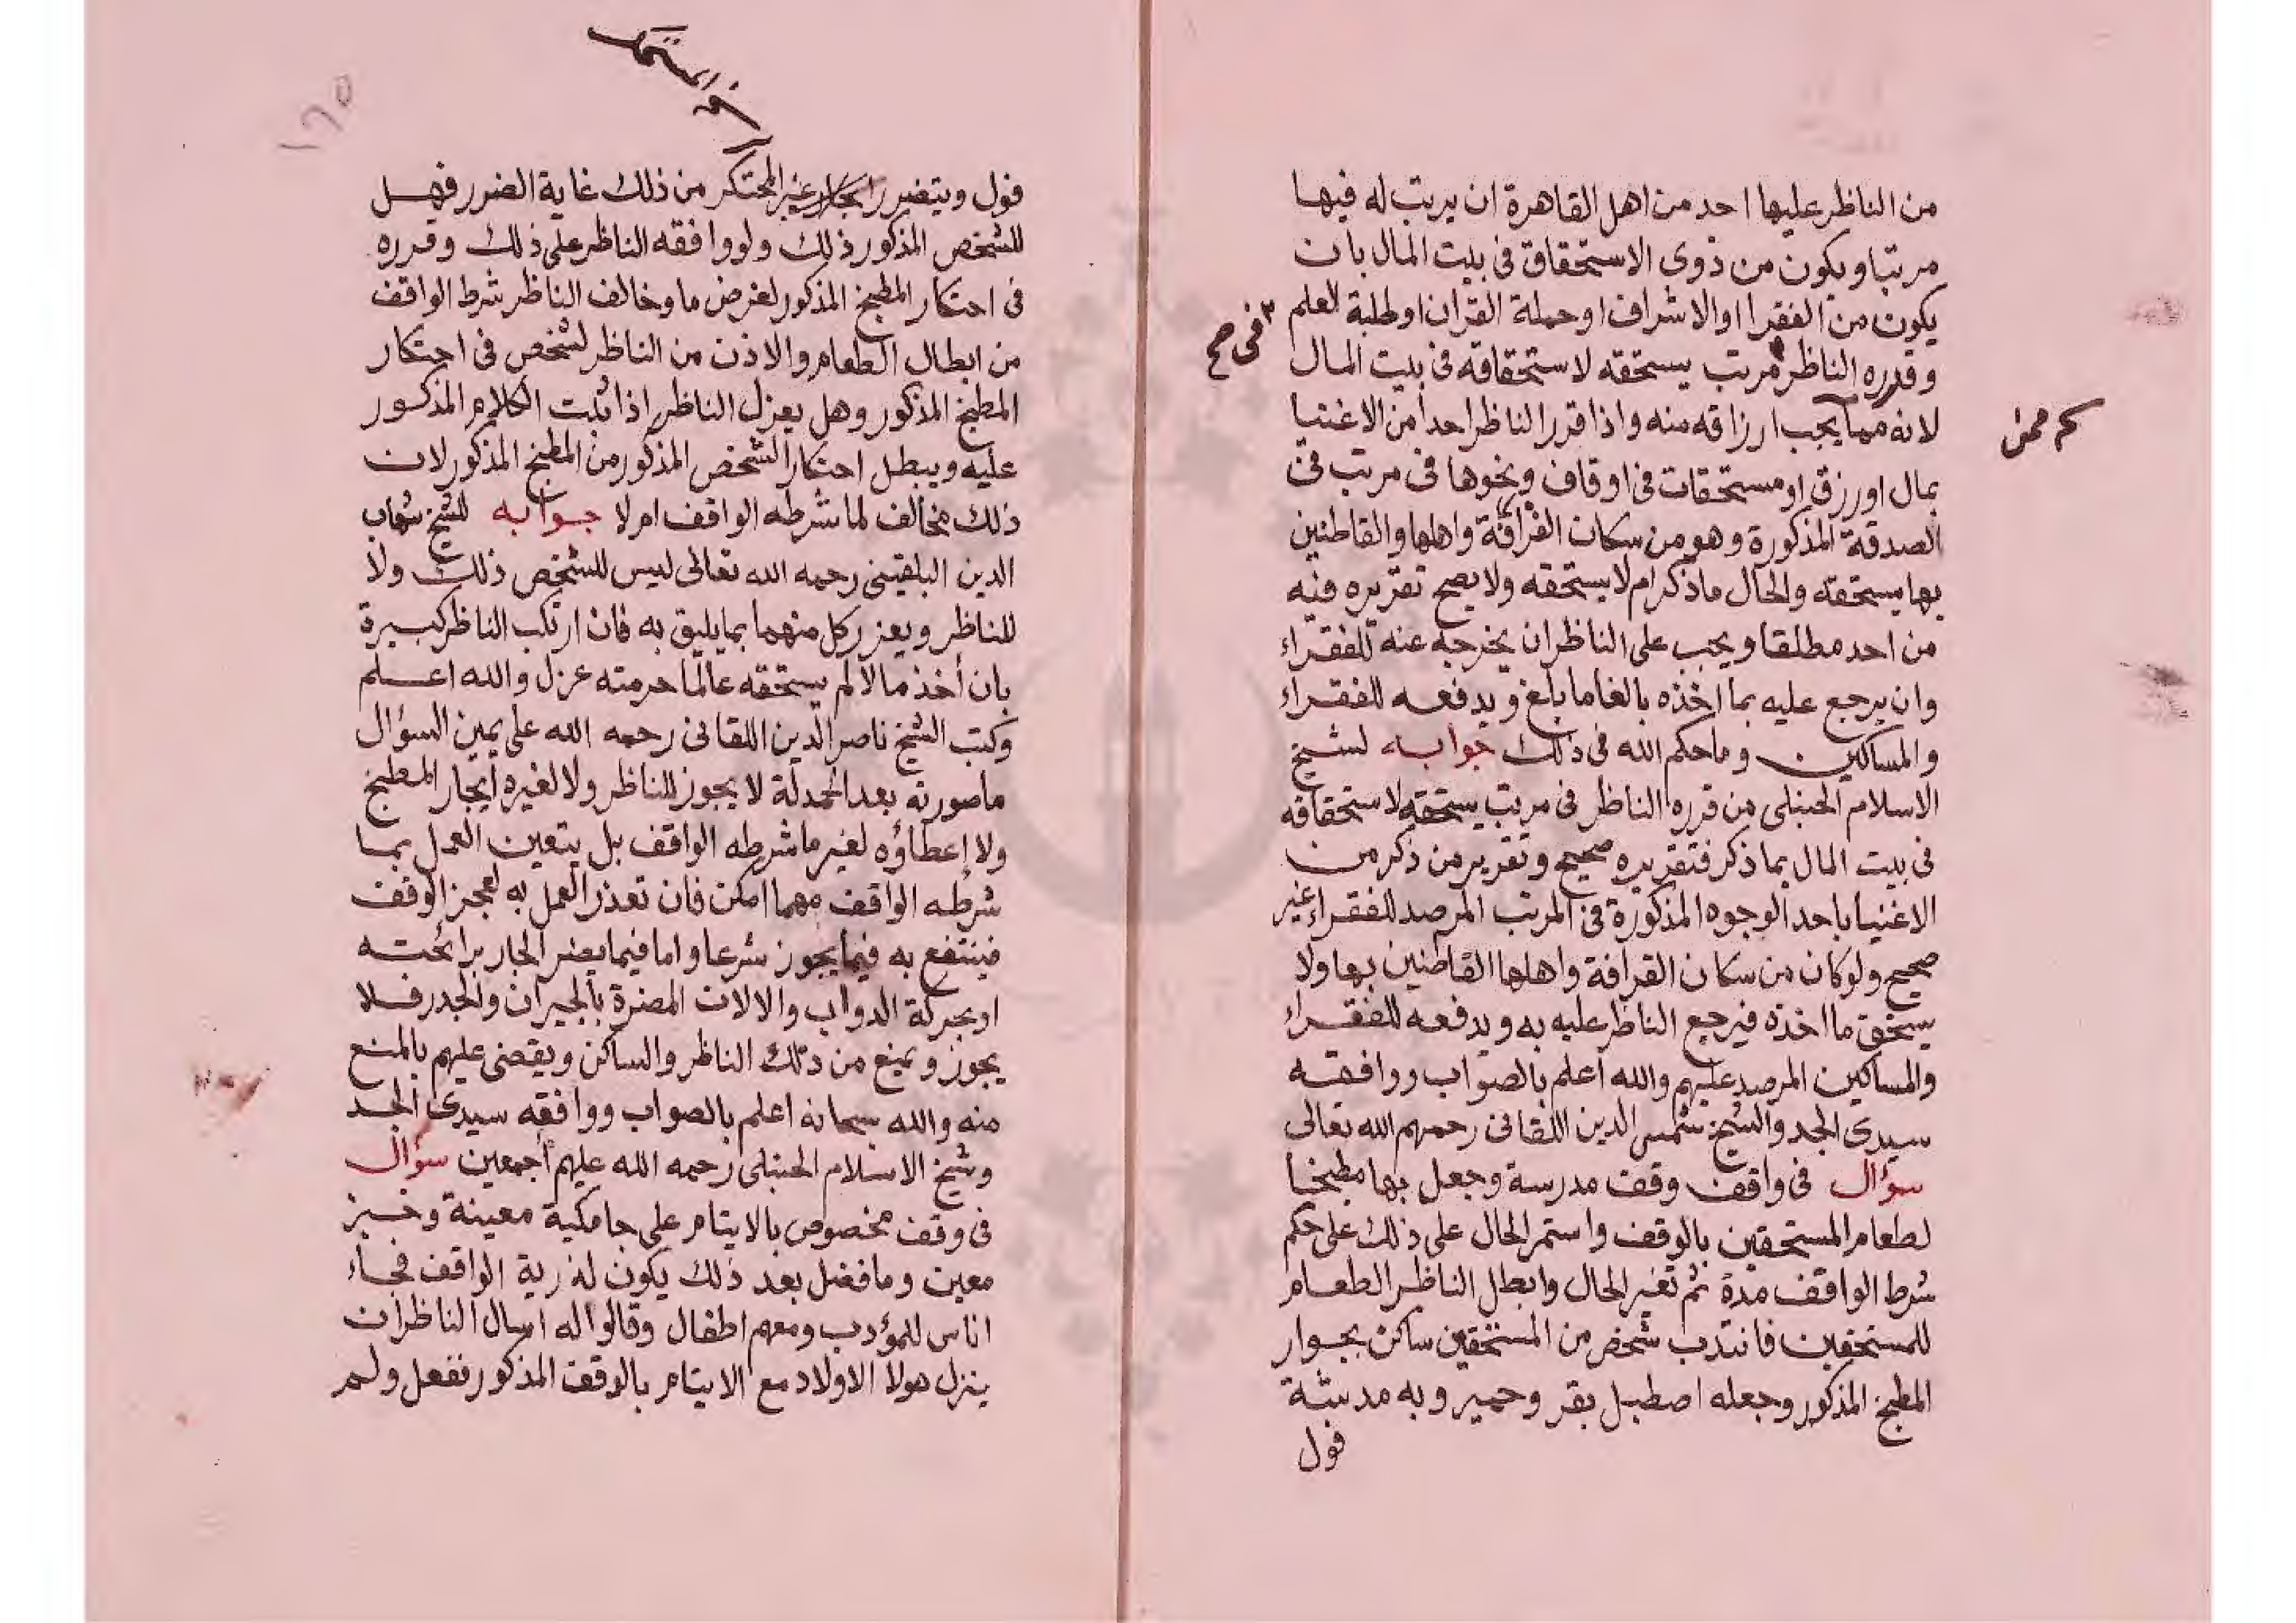 من الناظر عليها احد من اهل القاهرة ان يرتب له فيها
مرتبا ويكون من ذوى الاستحقاق فى بيت المال بان
يكون من الفقرا او الاشراف او حملة القران او طلبة العلم
وقرره الناظر مرتب يستحقه لاستحقاقه فى بيت المال
فى صح
لانه مما يجب ارزاقه منه واذا قرر الناظر احدا من الاغنيا
بمال او رزق او مستحقات فى اوقاف ونحوها فى مرتب فى
الصدقة المذكورة وهو من سكان القرافة واهلها والقاطنين
بها يستحقه والحال ما ذكر ام لا يستحقه ولا يصح تقريره فيه
من احد مطلقا ويجب على الناظر ان يخرجه عنه للفقراء
وان يرجع عليه بما اخذه بالغا ما بلغ ويدفعه للفقراء
والمساكين وما حكم الله فى ذلك جوابه لشيخ
الاسلام الحنبلى من قرره الناظر فى مرتب يستحقه لاستحقاقه
فى بيت المال بما ذكر فتقريره صحيح وتقرير من ذكر من
الاغنيا باحد الوجوه المذكورة فى المرتب المرصد للفقراء غير
صحيح ولو كان من سكان القرافة واهلها القاطنين بها ولا
يستحق ما اخذه فيرجع الناظر عليه به ويدفعه للفقراء
والمساكين المرصد عليهم والله اعلم بالصواب ووافقه
سيدى الجد والشيخ شمس الدين اللقانى رحمهم الله تعالى
سؤال فى واقف وقف مدرسة وجعل بها مطبخا
لطعام المستحقين بالوقف واستمر الحال على ذلك على حكم
شرط الواقف مدة ثم تغير الحال وابطل الناظر الطعام
للمستحقين فانتدب شخص من المستحقين ساكن بجوار
المطبخ المذكور وجعله اصطبل بقر وحمير وبه مدشة
فول
١٦٥
فول ويتضرر الجار غير المحتكر من ذلك غاية الضرر فهل
للشخص المذكور ذلك ولو وافقه الناظر على ذلك وقرره
فى احتكار المطبخ المذكور لغرض ما وخالف الناظر شرط الواقف
من ابطال الطعام والاذن من الناظر لشخص فى احتكار
المطبخ المذكور وهل يعزل الناظر اذا ثبت الكلام المذكور
عليه ويبطل احتكار الشخص المذكور من المطبخ المذكور لان
ذلك مخالف لما شرطه الواقف ام لا جوابه للشيخ شهاب
الدين البلقينى رحمه الله تعالى ليس للشخص ذلك ولا
للناظر ويعزر كل منهما بما يليق به فان ارتكب الناظر كبيرة
بان أخذ مالا لم يستحقه عالما حرمته عزل والله اعلم
وكتب الشيخ ناصر الدين اللقانى رحمه الله على يمين السؤال
ما صورته بعد الحمدلة لا يجوز للناظر ولا لغيره ايجار المطبخ
ولا إعطاؤه لغير ما شرطه الواقف بل يتعين العمل بما
شرطه الواقف مهما امكن فان تعذر العمل به لعجز الوقف
فينتفع به فيما يجوز شرعا واما فيما يضر الجار برائحته
او بحركة الدواب والالات المضرة بالجيران والجدر فلا
يجوز ويمنع من ذلك الناظر والساكن ويقضى عليهم بالمنع
منه والله سبحانه اعلم بالصواب ووافقه سيدى الجد
وشيخ الاسلام الحنبلى رحمه الله عليهم أجمعين سؤال
فى وقف مخصوص بالايتام على جامكية معينة وخبز
معين وما فضل بعد ذلك يكون لذرية الواقف فجاء
اناس للمؤدب ومعهم اطفال وقالوا له اسال الناظر ان
ينزل هولا الاولاد مع الايتام بالوقف المذكور ففعل ولم